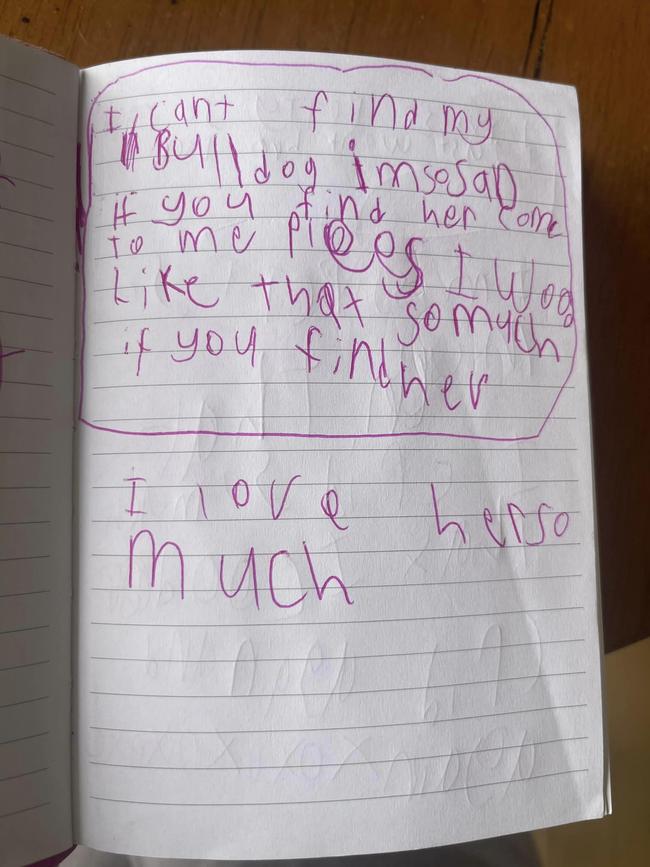 I cant find my
Bulldog imsosad
if you find her come
to me pleees I woo
Like that somuch
if you find her
I love herso
much